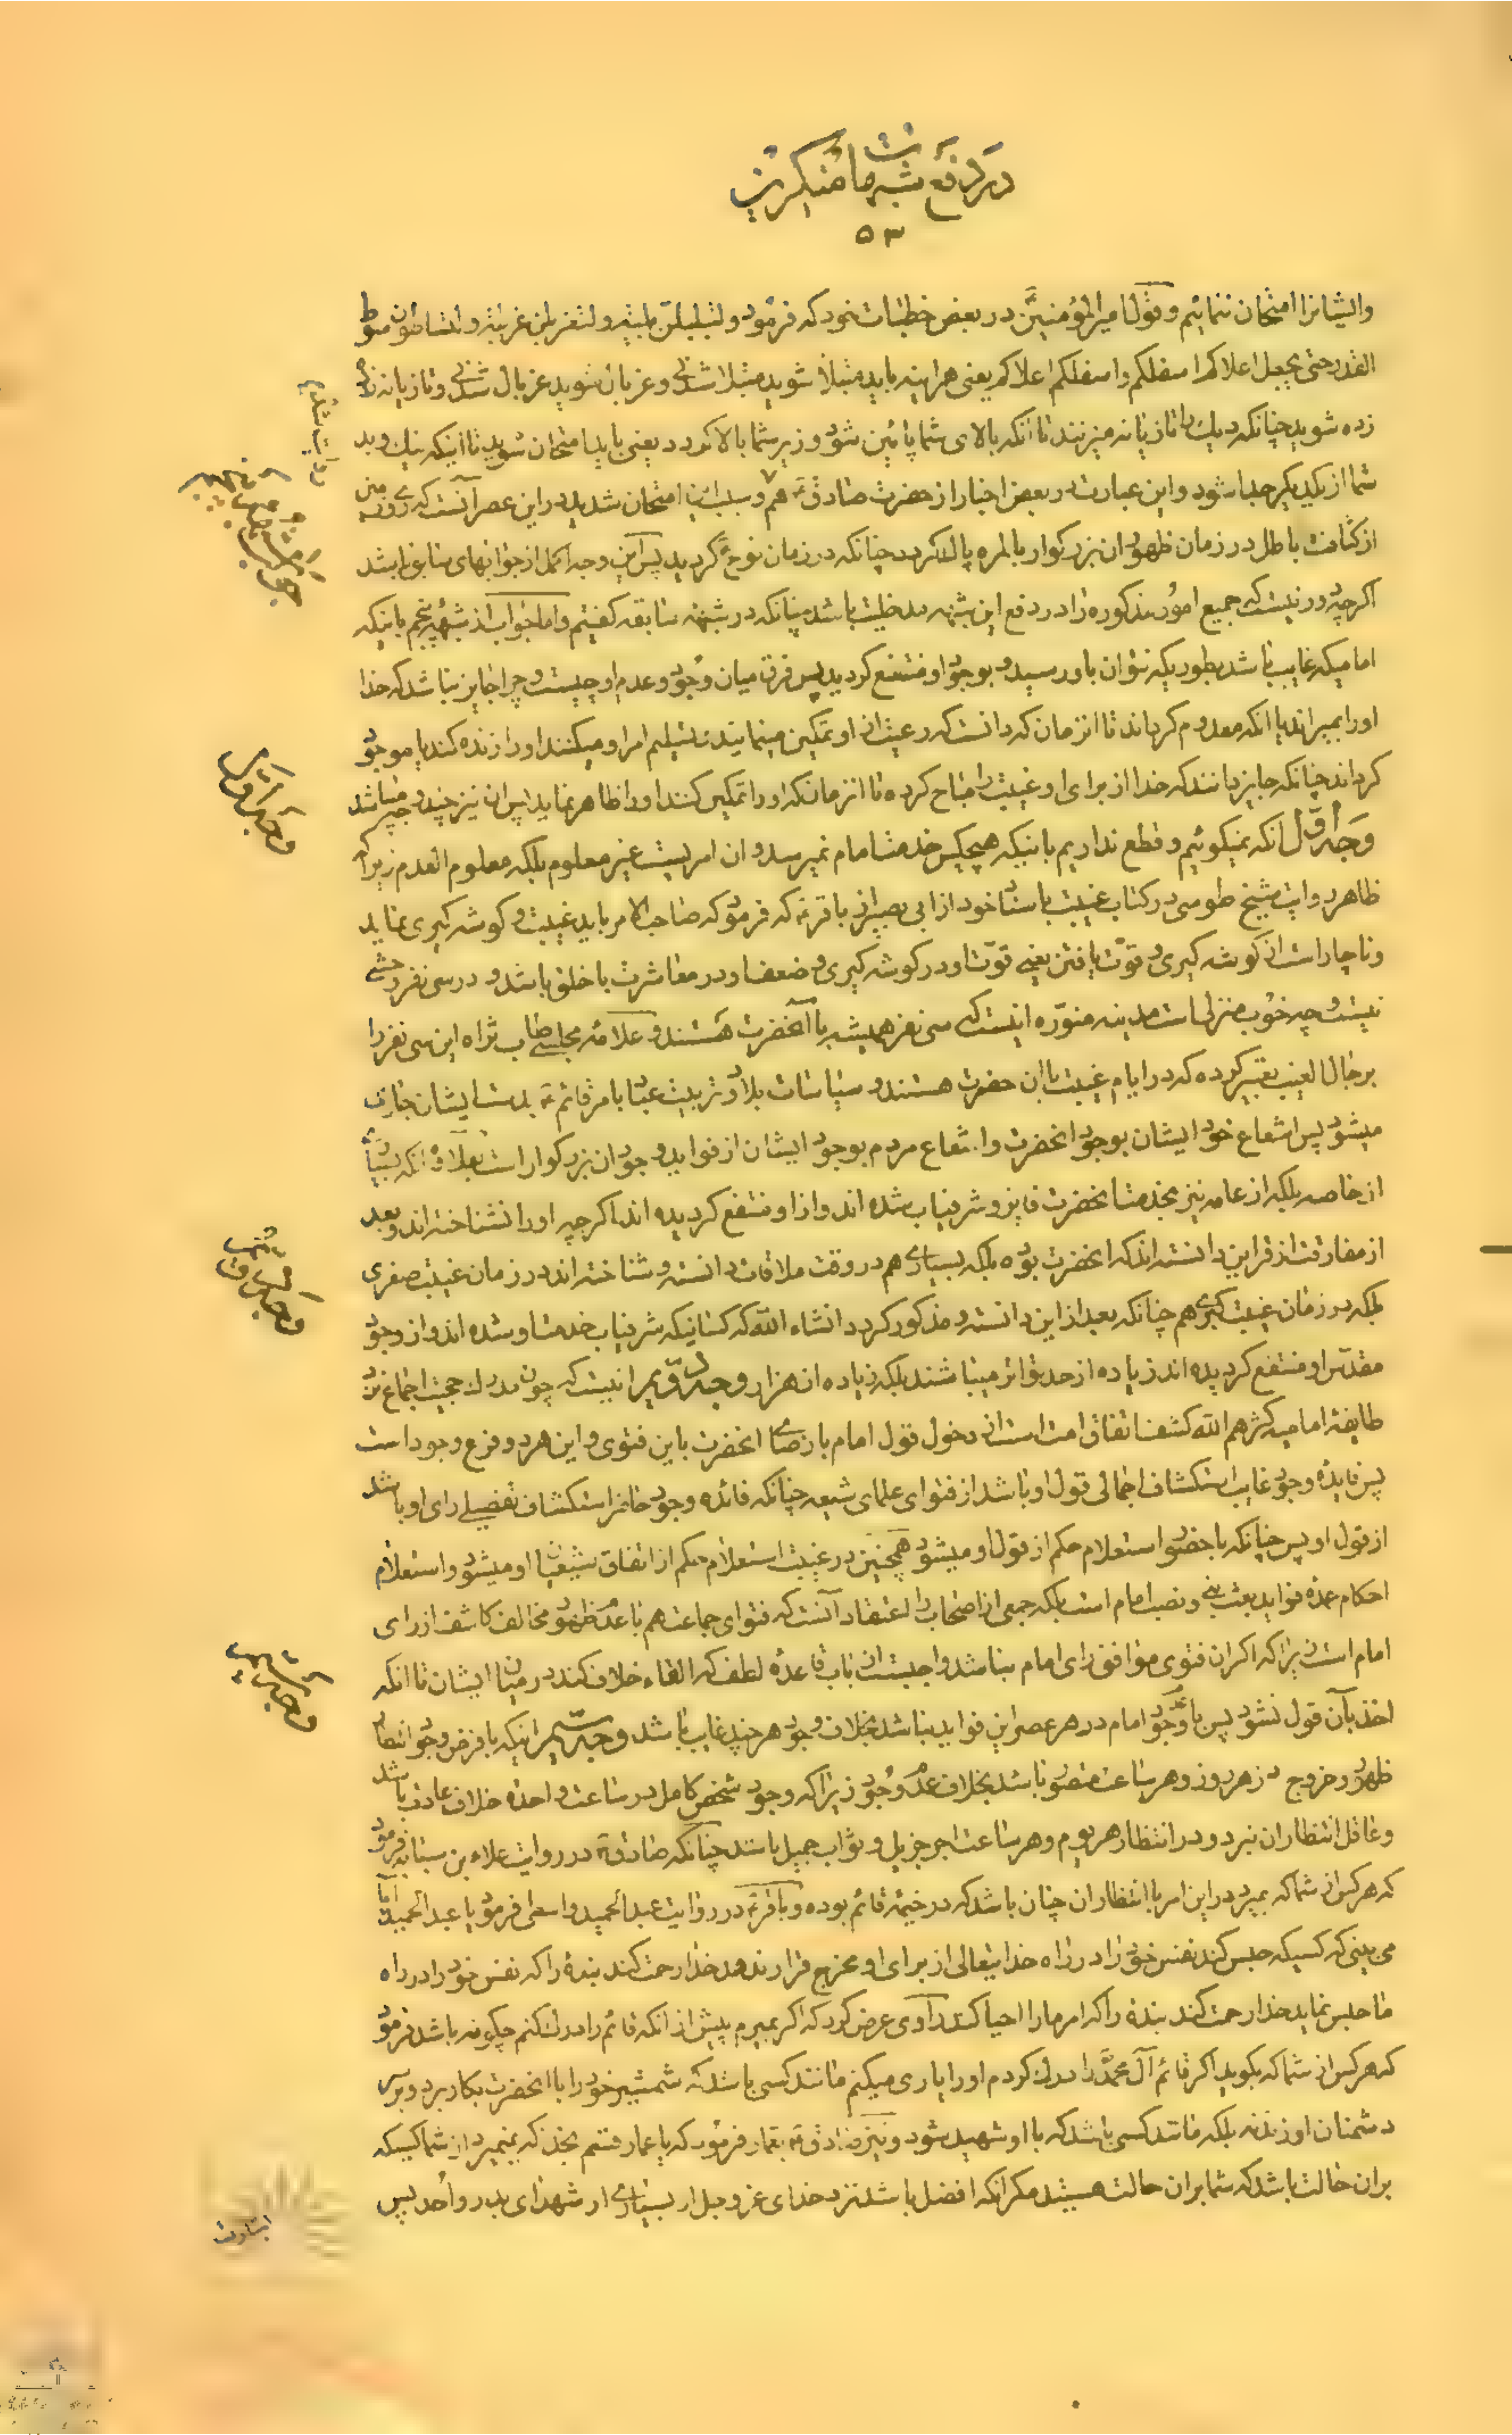 در دفع شبهات منکرین
۵۳
و ایشانرا امتحان ننمائیم و قول امیرالمؤمنین در بعض خطبات خود که فرمود و لتبلبلن بلبلة و لتغربلن غربلة و لتساطن سوط
القدر حتی یجعل اعلاکم اسفلکم و اسفلکم اعلاکم یعنی هراینه باید مبتلا شوید مبتلا شدنی و غربال شوید غربال شدنی و تازیانه
زده شوید چنانکه دیك را تازیانه میزنند تا آنکه بالای شما پائین شود و زیر شما بالا گردد یعنی باید امتحان شوید تا اینکه نیك و بد
شما از یکدیگر جدا شود و این عبارت در بعض اخبار از حضرت صادق هم و سبب این امتحان شدید در این عصر آنست که روی زمین
از کثافت باطل در زمان ظهور ان بزرگوار بالمره پاك گردد چنانکه در زمان نوح گردید پس این وجه اکمل از جوابهای سابق باشد
اگر چه دور نیست که جمیع امور مذکوره را در دفع این شبهه مدخلیت باشد چنانکه در شبهه سابقه گفتیم و اما جواب از شبهه پنجم باینکه
امامیکه غایب باشد بطوریکه نتوان باو رسید و بوجود او منتفع گردید پس فرق میان وجود و عدم او چیست و چرا جایز نباشد که خدا
اورا بمیراند یا انکه معدوم گرداند تا انزمان که دانست که رعیت از او تمکین مینمایند و تسلیم امر او میکنند اورا زنده کند یا موجود
گرداند چنانکه جایز دانند که خدا از برای او غیبت را مباح کرده تا انزمانکه اورا تمکین کنند اورا ظاهر نماید پس از ان نیز چند وجه میباشد
وجه اول انکه نمیگوئیم و قطع نداریم باینکه هیچکس خدمت امام نمیرسد و ان امریست غیر معلوم بلکه معلوم العدم زیرا که
ظاهر روایت شیخ طوسی در کتاب غیبت باسناد خود از ابی بصیر از باقر که فرمود که صاحب الامر باید غیبت و گوشه گیری نماید
و ناچار است از گوشه گیری و قوت یافتن یعنی قوت او در گوشه گیری و ضعف او در معاشرت با خلق باشد و در سی نفر وحشتی
نیست و چه خوب منزلیست مدینه منوره اینست که سی نفر همیشه با آنحضرت هستند و علامه مجلسی طاب ثراه این سی نفر را
برجال الغیب تعبیر کرده که در ایام غیبت با ان حضرت هستند و سیاسات بلاد و تربیت عباد بامر قائم بدست ایشان جاری
میشود پس انتفاع خود ایشان بوجود انحضرت و انتفاع مردم بوجود ایشان از فواید وجود ان بزرگوار است بعلاوه انکه بسیاری
از خاصه بلکه از عامه نیز بخدمت انحضرت فایز و شرفیاب شده اند و از او منتفع گردیده اند اگر چه اورا نشناخته اند و بعد
از مفارقت از قراین دانسته اند که انحضرت بوده بلکه بسیاری هم در وقت ملاقات دانسته و شناخته اند در زمان غیبت صغری
بلکه در زمان غیبت کبری هم چنانکه بعد از این دانسته و مذکور گردد انشاء الله که کسانیکه شرفیاب خدمت او شده اند و از وجود
مقدس او منتفع گردیده اند زیاده از حد تواتر میباشند بلکه زیاده از هزار وجه دویم انیست که چون مدرك حجیت اجماع نزد
طایفه امامیه کثرهم الله کشف اتفاق امت است از دخول قول امام یا رضای انحضرت باین فتوی و این هر دو فرع وجود است
پس فایده وجود غایب استکشاف اجمالی قول او باشد از فتوای علمای شیعه چنانکه فائده وجود حاضر استکشاف تفصیلی رای او باشد
از قول او پس چنانکه با حضور استعلام حکم از قول او میشود همچنین در غیبت استعلام حکم از اتفاق شیعیان او میشود و استعلام
احکام عمده فواید بعث نبی و نصب امام است بلکه جمعی از اصحاب را اعتقاد آنست که فتوای جماعت هم با عدم ظهور مخالف کاشف از رای
امام است زیرا که اگر ان فتوی موافق رای امام نباشد واجبست از باب قاعده لطف که القاء خلاف کند در میان ایشان تا انکه
اخذ بآن قول نشود پس با عدم وجود امام در هر عصر این فواید نباشد بخلاف وجود هر چند غایب باشد وجه سیم اینکه با فرض وجود انتظار
ظهور و خروج در هر روز و هر ساعت متصور باشد بخلاف عدم وجود زیرا که وجود شخص کامل در ساعت واحده خلاف عادت باشد
و عاقل انتظار ان نبرد و در انتظار هر یوم و هر ساعت اجر جزیل و ثواب جمیل باشد چنانکه صادق در روایت علاء بن سیابه فرمود
که هر کس از شما که بمیرد در این امر با انتظار ان چنان باشد که در خیمه قائم بوده و باقر در روایت عبدالحمید واسطی فرمود یا عبدالحمید آیا
می بینی که کسیکه حبس کند نفس خود را در راه خدایتعالی از برای او مخرج قرار ندهد خدا رحمت کند بنده را که نفس خود را در راه
ما حبس نماید خدا رحمت کند بنده را که امر مارا احیا کند راوی عرض کرد که اگر بمیرم پیش از انکه قائم را درك کنم چگونه باشد فرمود
که هر کس از شما که بگوید اگر قائم آل محمد را درك کردم اورا یاری میکنم مانند کسی باشد که شمشیر خود را با انحضرت بکار برد و برسر
دشمنان او زند نه بلکه مانند کسی باشد که با او شهید شود و نیز صادق بعمار فرمود که یا عمار قسم بخدا که نمیرد از شما کسیکه
بران حالت باشد که شما بران حالت هستید مگر انکه افضل باشد نزد خدای عز و جل از بسیاری از شهدای بدر و احد پس
جواب از شبهه پنجم
وجه اول
وجه دویم
وجه سیم